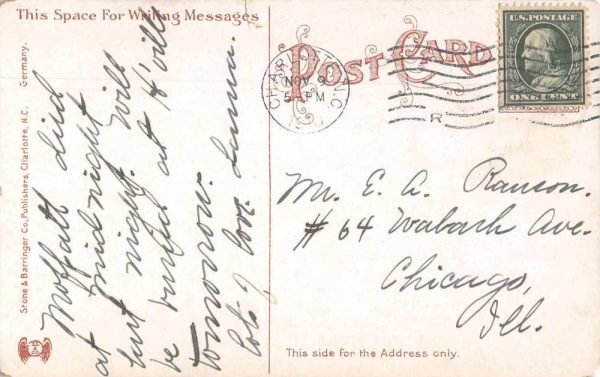 This Space For Writing Messages
POST CARD
U.S. POSTAGE
ONE CENT
CHARLOTTE, N.C.
NOV 9
5-PM
R
Moffatt died
at mid night
last night. Will
be buried at H'ville
tomorrow.
Lots of love.
Mr. E. A. Ranson.
# 64 Wabash Ave.
Chicago,
Ill.
Stone & Barringer Co., Publishers, Charlotte, N.C. Germany.
This side for the Address only.